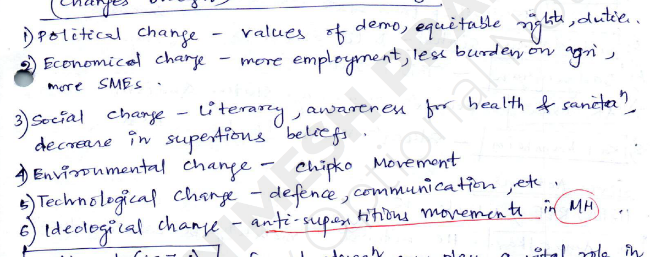 Changes
1) Political change - values of demo, equitable rights, duties.
2) Economical change - more employment, less burden on agri,
more SMEs.
3) Social change - Literarcy, awareness for health & sanitaⁿ,
decrease in superstions beliefs.
4) Environmental change - chipko Movement
5) Technological change - defence, communication, etc.
6) Ideological change - anti-superstitious movements in MH
play a vital role in